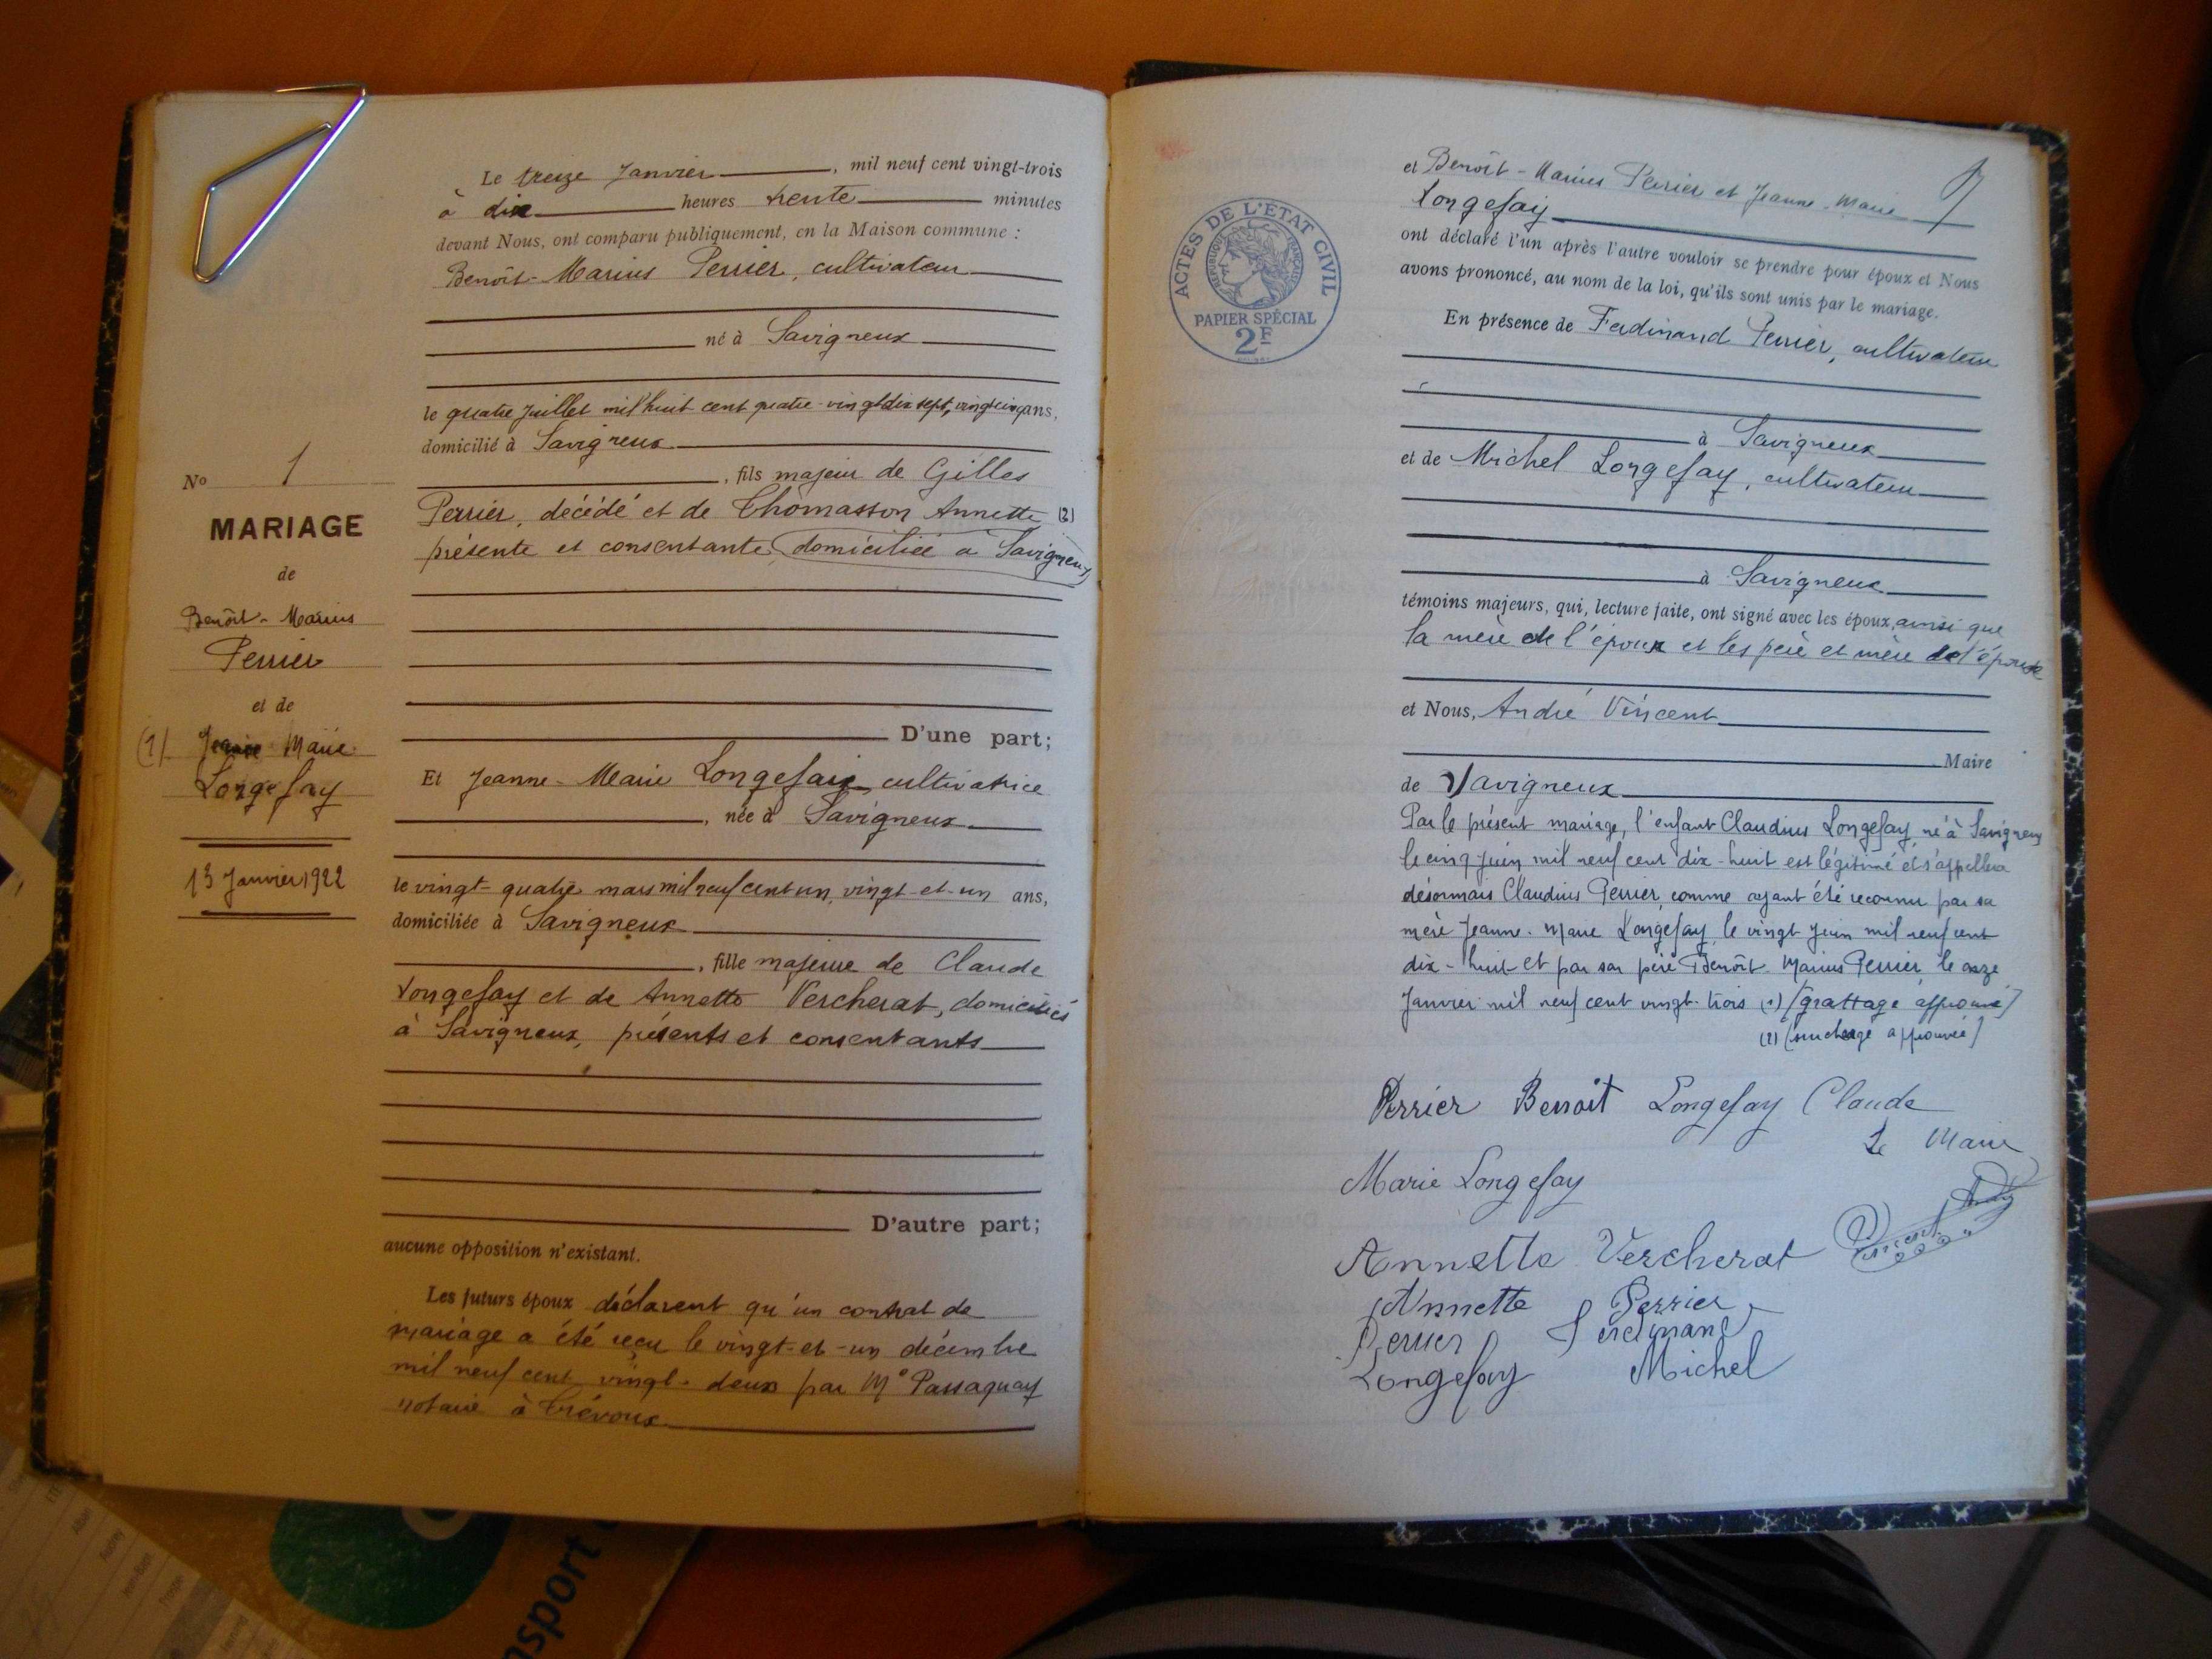 Le treize Janvier, mil neuf cent vingt-trois
à dix heures trente minutes
devant Nous, ont comparu publiquement, en la Maison commune :
Benoît-Marius Perrier, cultivateur
né à Savigneux
le quatre Juillet mil huit cent quatre-vingt dix sept, vingt cinq ans,
domicilié à Savigneux
, fils majeur de Gilles
Perrier, décédé et de Thomasson Annette (2)
présente et consentante, domiciliée à Savigneux
D'une part;
Et Jeanne-Marie Longefay, cultivatrice
, née à Savigneux
le vingt-quatre mars mil neuf cent un, vingt-et-un ans,
domiciliée à Savigneux
, fille majeure de Claude
Longefay et de Annette Vercherat, domiciliés
à Savigneux, présents et consentants
D'autre part;
aucune opposition n'existant.
Les futurs époux déclarent qu'un contrat de
mariage a été reçu le vingt-et-un décembre
mil neuf cent vingt-deux par Me Passaquay
notaire à Trévoux
No 1
MARIAGE
de
Benoît-Marius
Perrier
et de
(1) Jeanne Marie
Longefay
13 Janvier 1922
et Benoît-Marius Perrier et Jeanne-Marie
Longefay
ont déclaré l'un après l'autre vouloir se prendre pour époux et Nous
avons prononcé, au nom de la loi, qu'ils sont unis par le mariage.
En présence de Ferdinand Perrier, cultivateur
à Savigneux
et de Michel Longefay, cultivateur
à Savigneux
témoins majeurs, qui, lecture faite, ont signé avec les époux, ainsi que
la mère de l'époux et les père et mère de l'épouse
et Nous, André Vincent
Maire
de Savigneux
Par le présent mariage, l'enfant Claudius Longefay, né à Savigneux
le cinq Juin mil neuf cent dix-huit est légitimé et s'appellera
désormais Claudius Perrier, comme ayant été reconnu par sa
mère Jeanne-Marie Longefay, le vingt Juin mil neuf cent
dix-huit et par son père Benoît-Marius Perrier le onze
Janvier mil neuf cent vingt-trois (1) [grattage approuvé]
(2) [surcharge approuvée]
Perrier Benoit Longefay Claude
Le Maire
Marie Longefay
Vincent André
Annette Vercherat
Annette Perrier
Perrier Ferdinand
Longefay Michel
ACTES DE L'ÉTAT CIVIL
RÉPUBLIQUE FRANÇAISE
PAPIER SPÉCIAL
2F